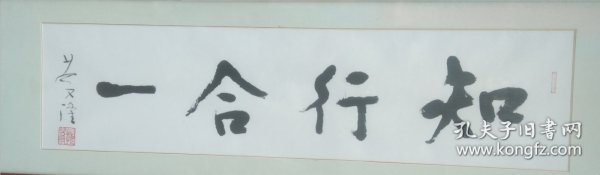 知行合一
孔夫子旧书网
www.kongfz.com